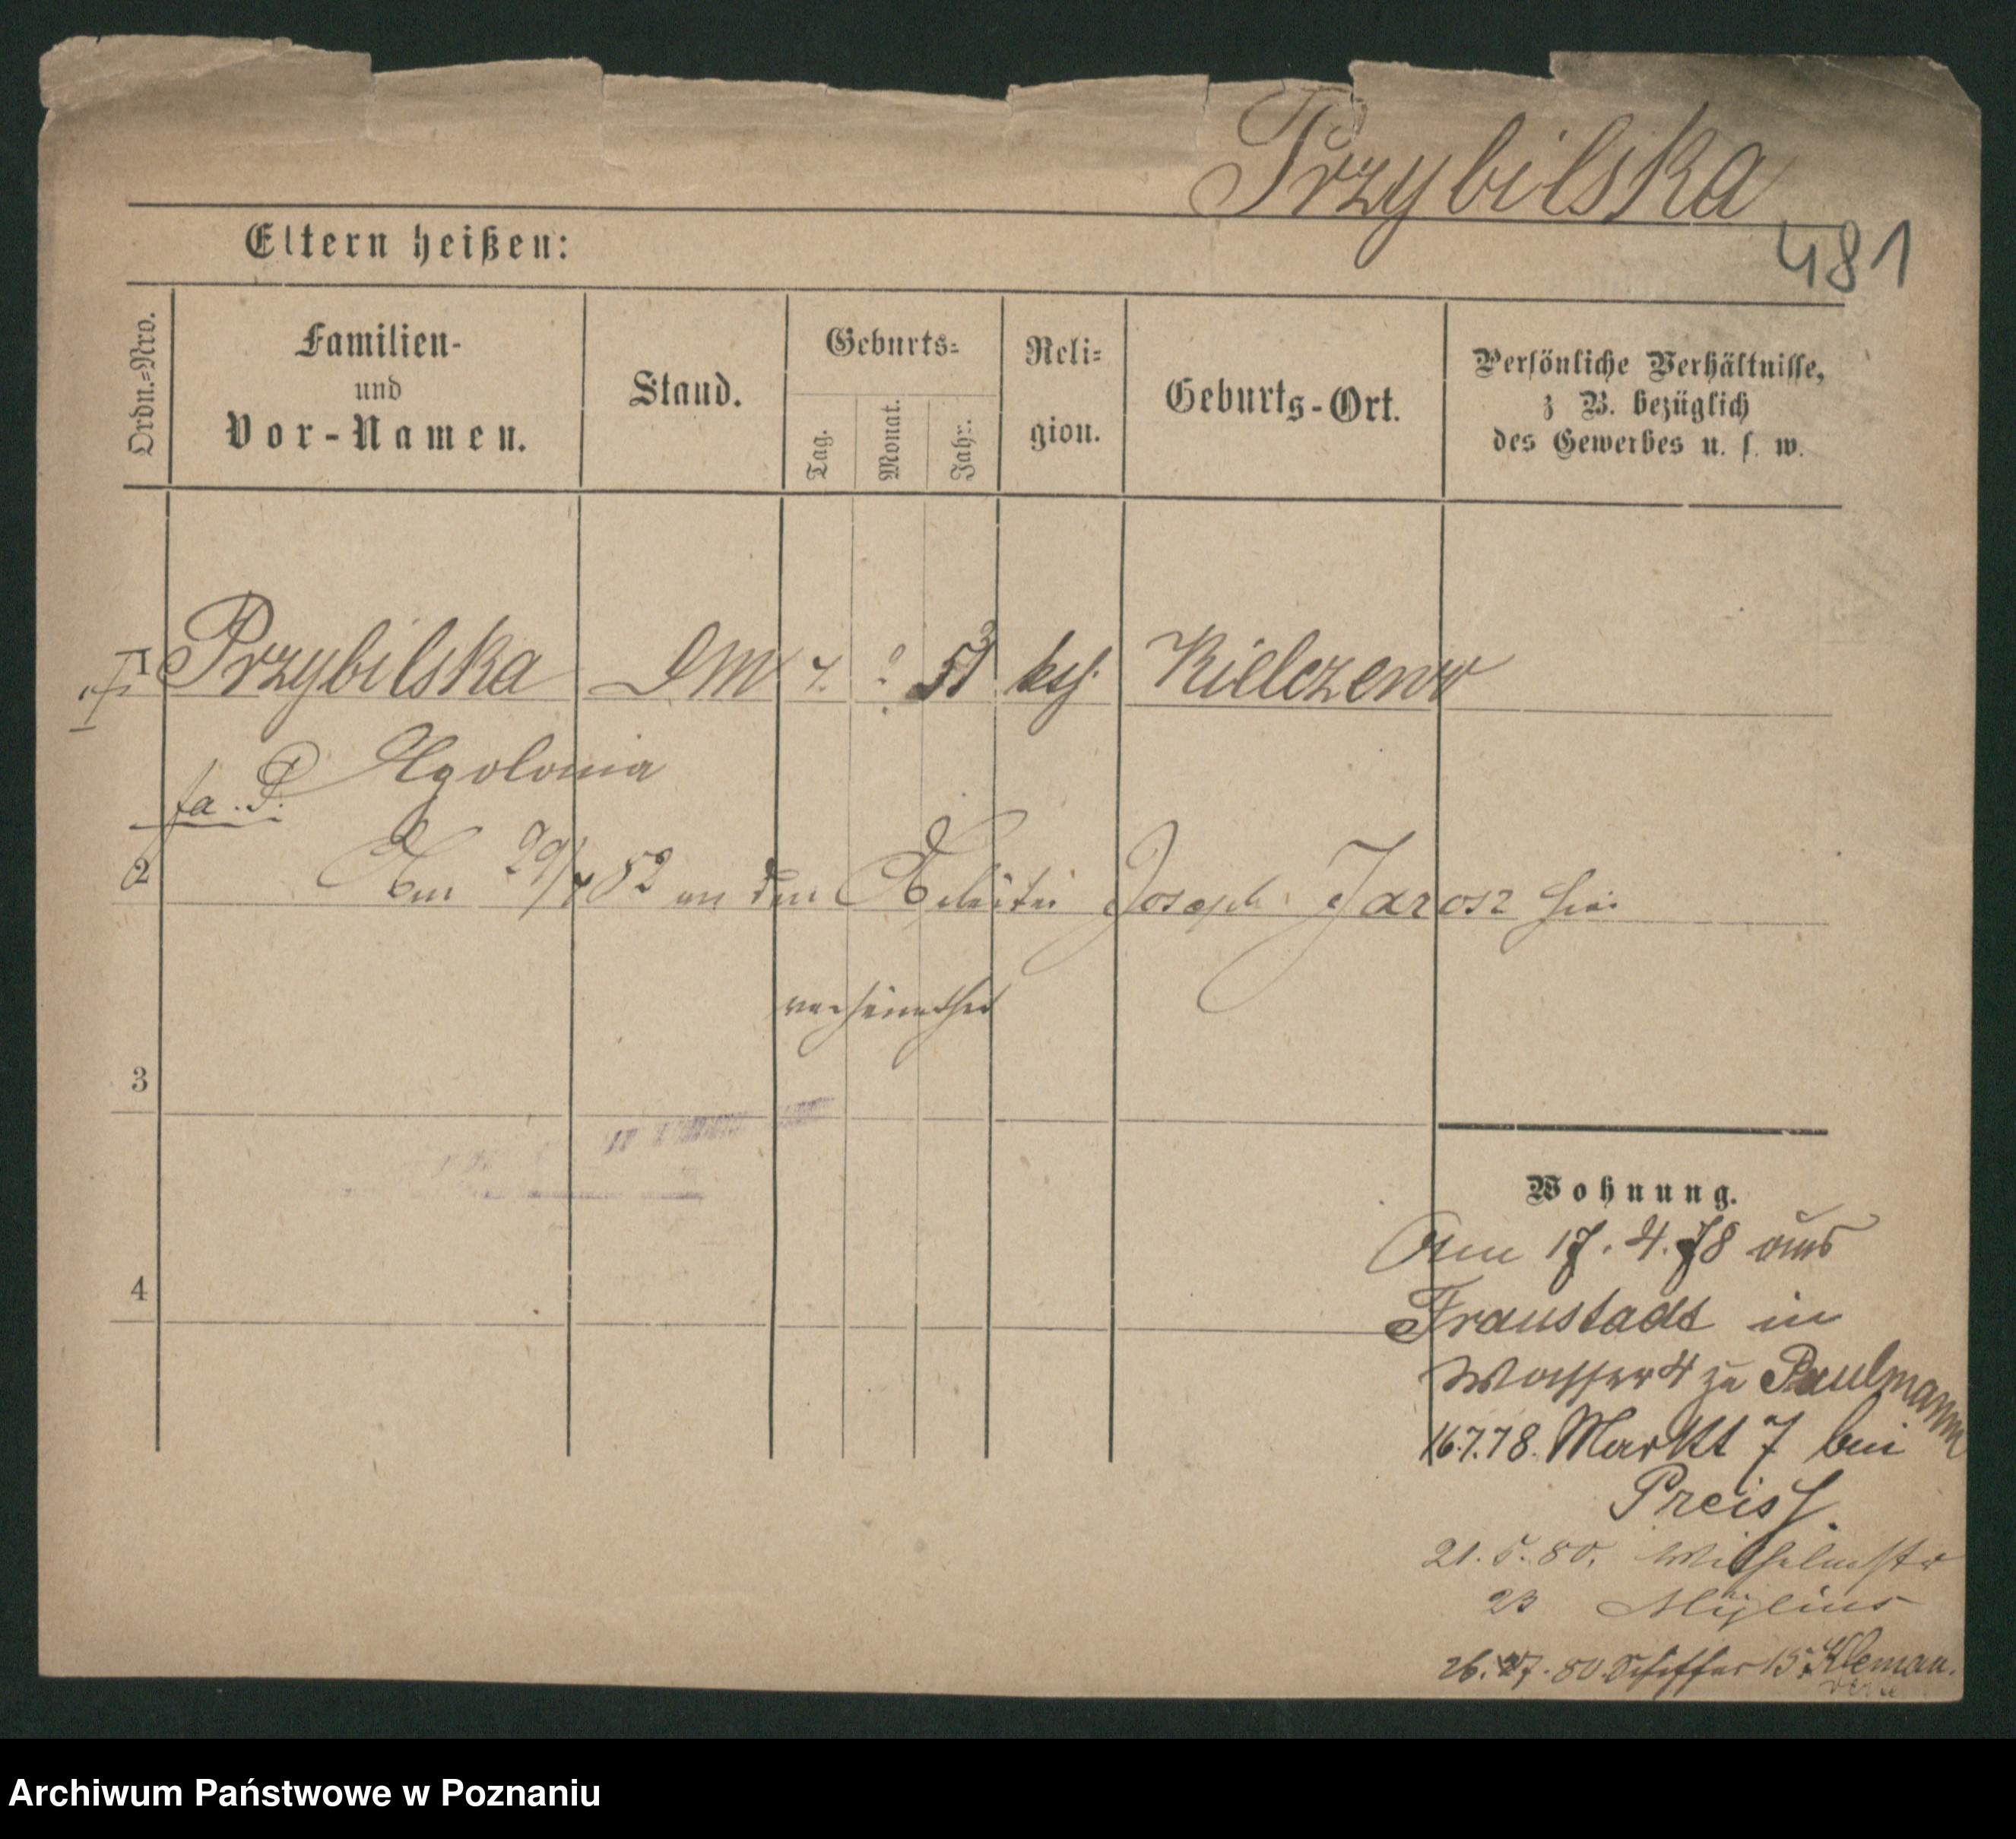 Przybilska
481
Eltern heißen:
Ordn.=Nro.
Familien-
und
Vor-Namen.
Stand.
Geburts=
Tag.
Monat.
Jahr.
Reli=
gion.
Geburts-Ort.
Persönliche Verhältnisse,
z B. bezüglich
des Gewerbes u. s. w.
1 Przybilska DM 53 kth. Kielczewo
Apolonia
2 Am 29/4 82 an den Arbeiter Joseph Jarosz hier
verheirathet
3
4
Wohnung.
Am 17. 4. 78 aus
Fraustadt in
Wasser 4 zu Paulmann
16.7.78. Markt 7 bei
Preiss.
21. 5. 80. Wilhelmstr
23 Mylius
26. 7. 80. Schiffer 15 Kleman.
Archiwum Państwowe w Poznaniu